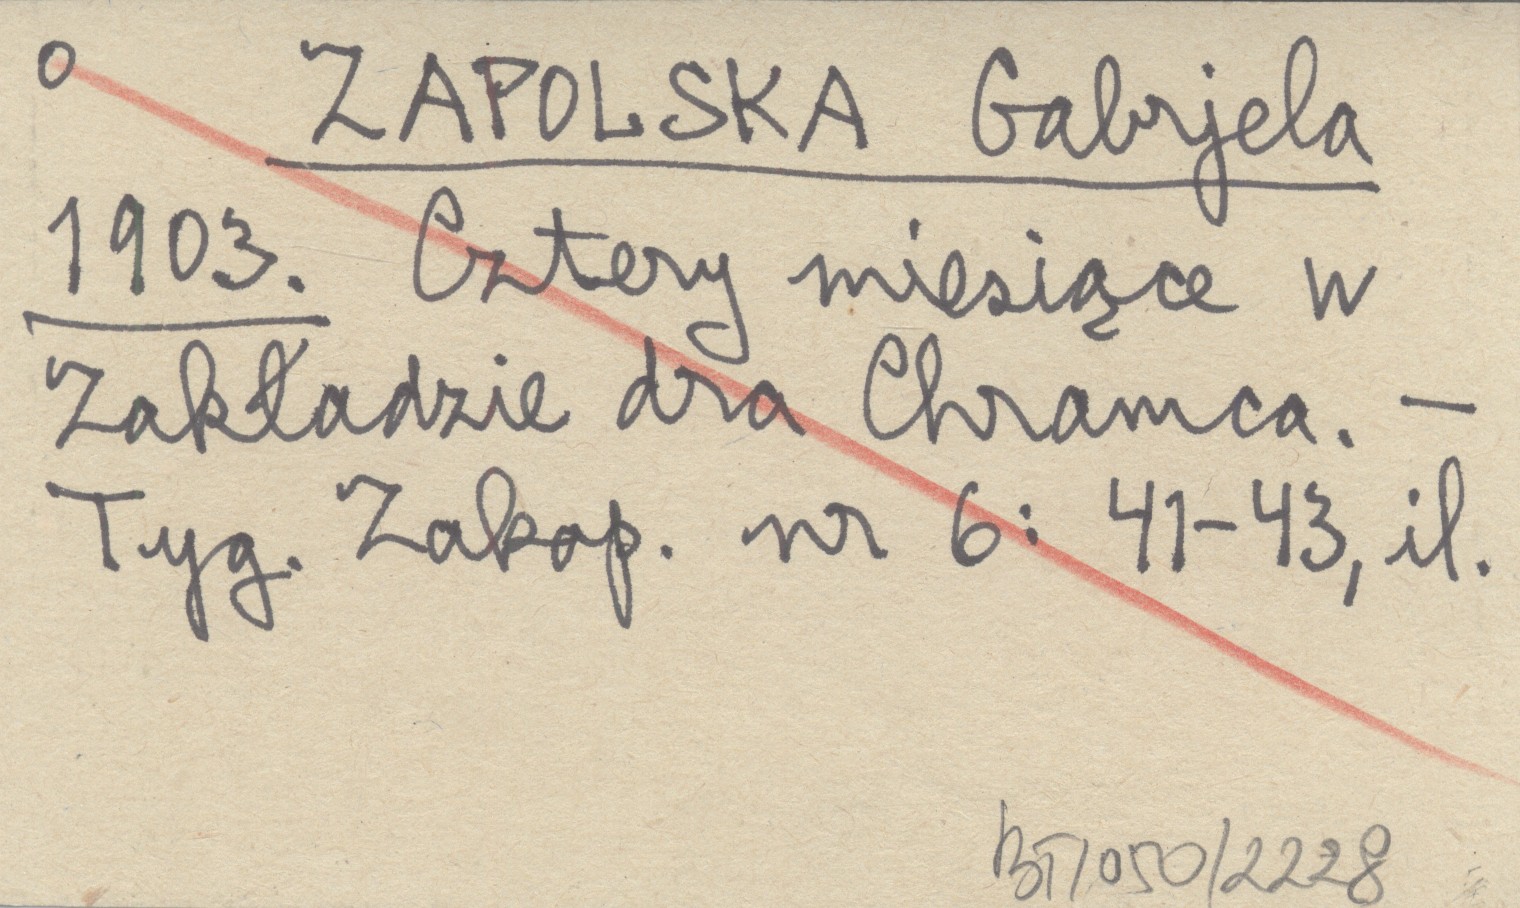 o ZAPOLSKA Gabrjela
1903. Cztery miesiące w
Zakładzie dra Chramca. –
Tyg. Zakop. nr 6: 41-43, il.
BT/050/2228